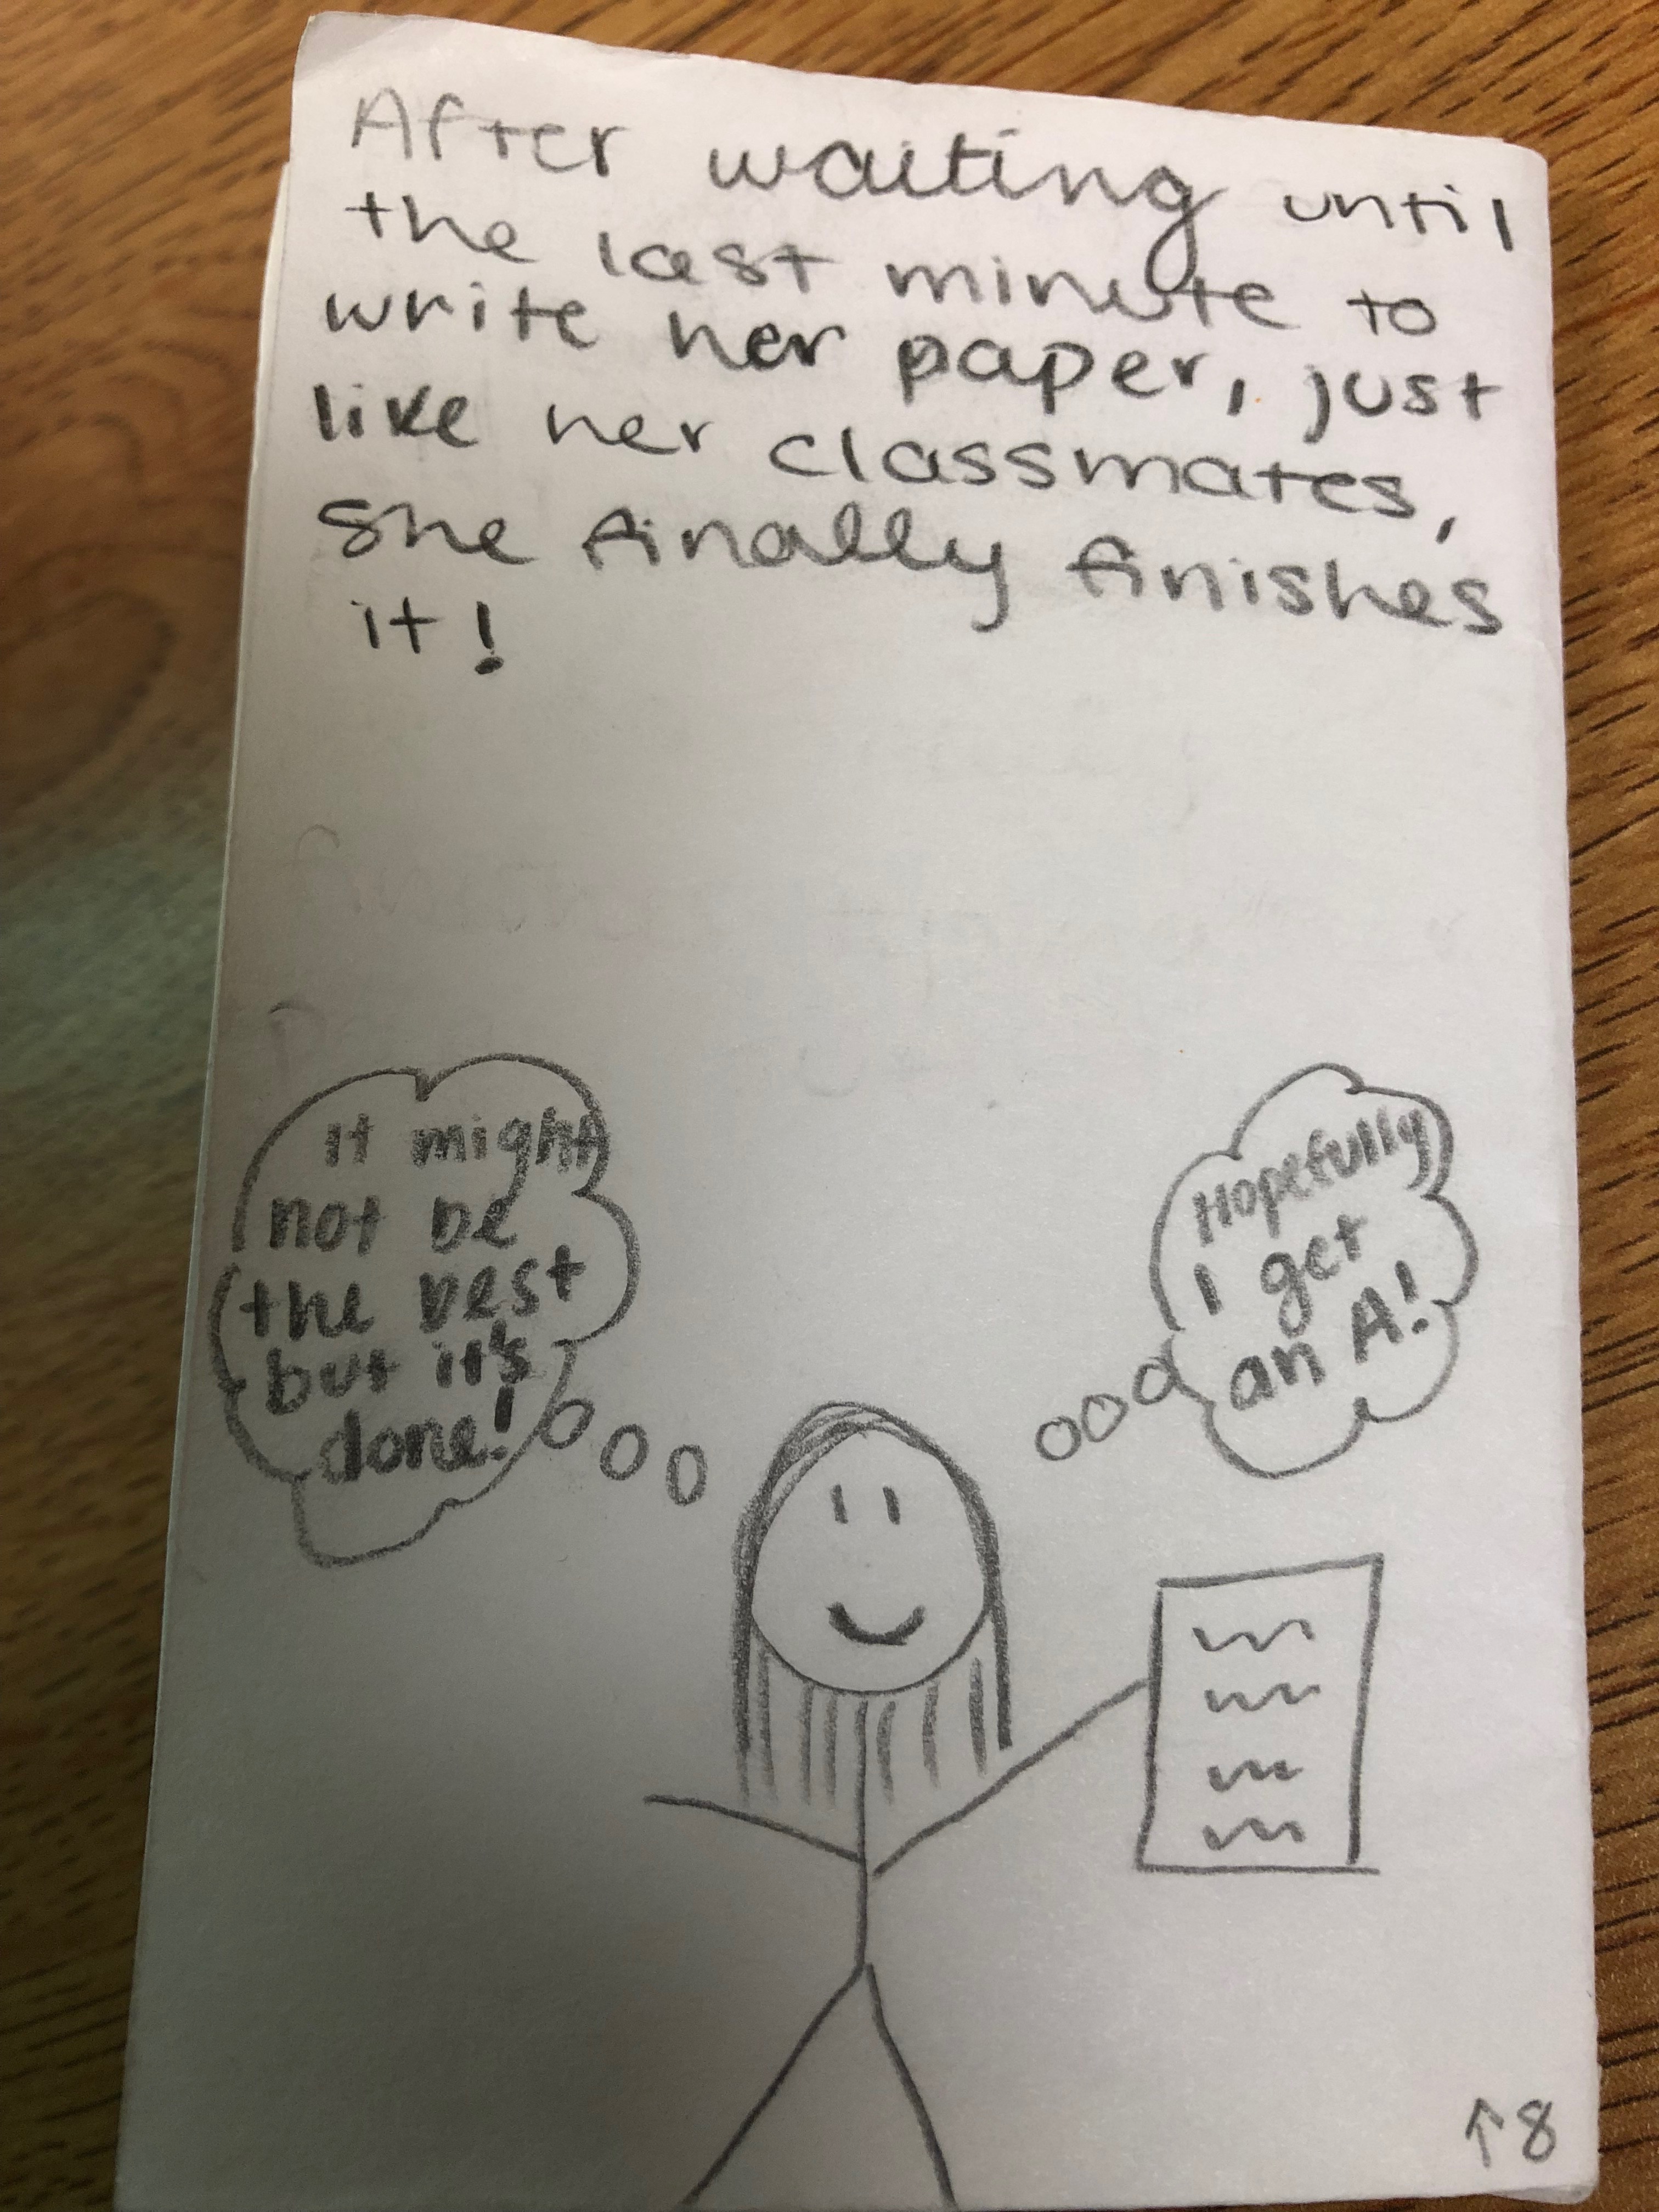 After waiting until
the last minute to
write her paper, just
like her classmates,
she finally finishes
it!
It might
not be
the best
but it's
done!
Hopefully
I get
an A!
↑8